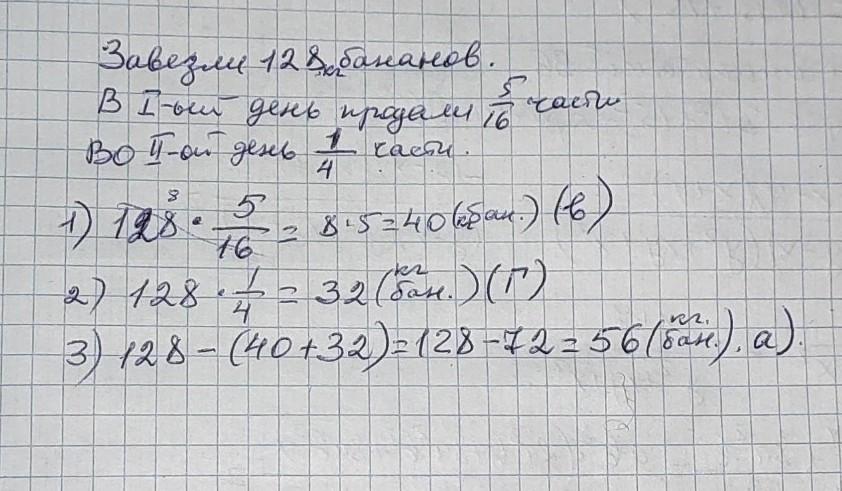 Завезли 128 кг бананов.
В I-ый день продали 5/16 части
Во II-ой день 1/4 части.
1) 128 · 5/16 = 8·5=40 (кг бан.) (в)
2) 128 · 1/4 = 32 (кг бан.) (г)
3) 128 – (40+32)=128–72=56 (кг. бан.). а).